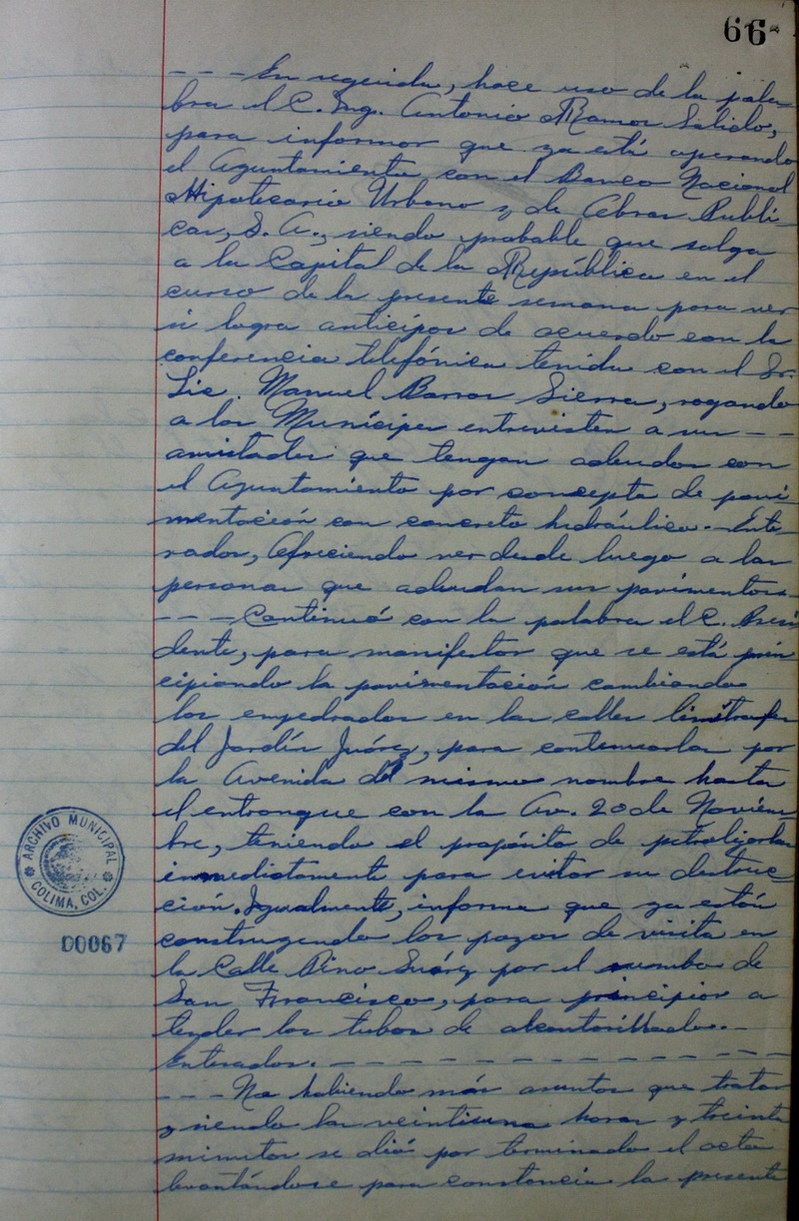 66
- - - En seguida, hace uso de la pala-
bra el C. Ing. Antonio Ramos Salido,
para informar que ya está operando
el Ayuntamiento con el Banco Nacional
Hipotecario Urbano y de Obras Públi-
cas, S. A., siendo probable que salga
a la Capital de la República en el
curso de la presente semana para ver
si logra anticipos de acuerdo con la
conferencia telefónica tenida con el Sr.
Lic. Manuel Barros Sierra, rogando
a los Munícipes entrevisten a sus - -
amistades que tengan adeudos con
el Ayuntamiento por concepto de pavi-
mentación con concreto hidráulico.- Ente-
rados, ofreciendo ver desde luego a las
personas que adeudan sus pavimentos.-
- - - Continuó con la palabra el C. Presi-
dente, para manifestar que se está prin-
cipiando la pavimentación cambiando
los empedrados en las calles limítrofes
del Jardín Juárez, para continuarla por
la Avenida del mismo nombre hasta
el entronque con la Av. 20 de Noviem-
bre, teniendo el propósito de petrolizarlas
inmediatamente para evitar su destruc-
ción. Igualmente, informa que ya están
construyendo los pozos de visita en
la Calle Pino Suárez por el rumbo de
San Francisco, para principiar a
tender los tubos de alcantarillado.-
Enterados. - - - - - - - - - - - -
- - - No habiendo más asuntos que tratar
y siendo las veintiuna horas y treinta
minutos se dió por terminado el acto
levantándose para constancia la presente
ARCHIVO MUNICIPAL
COLIMA, COL.
00067